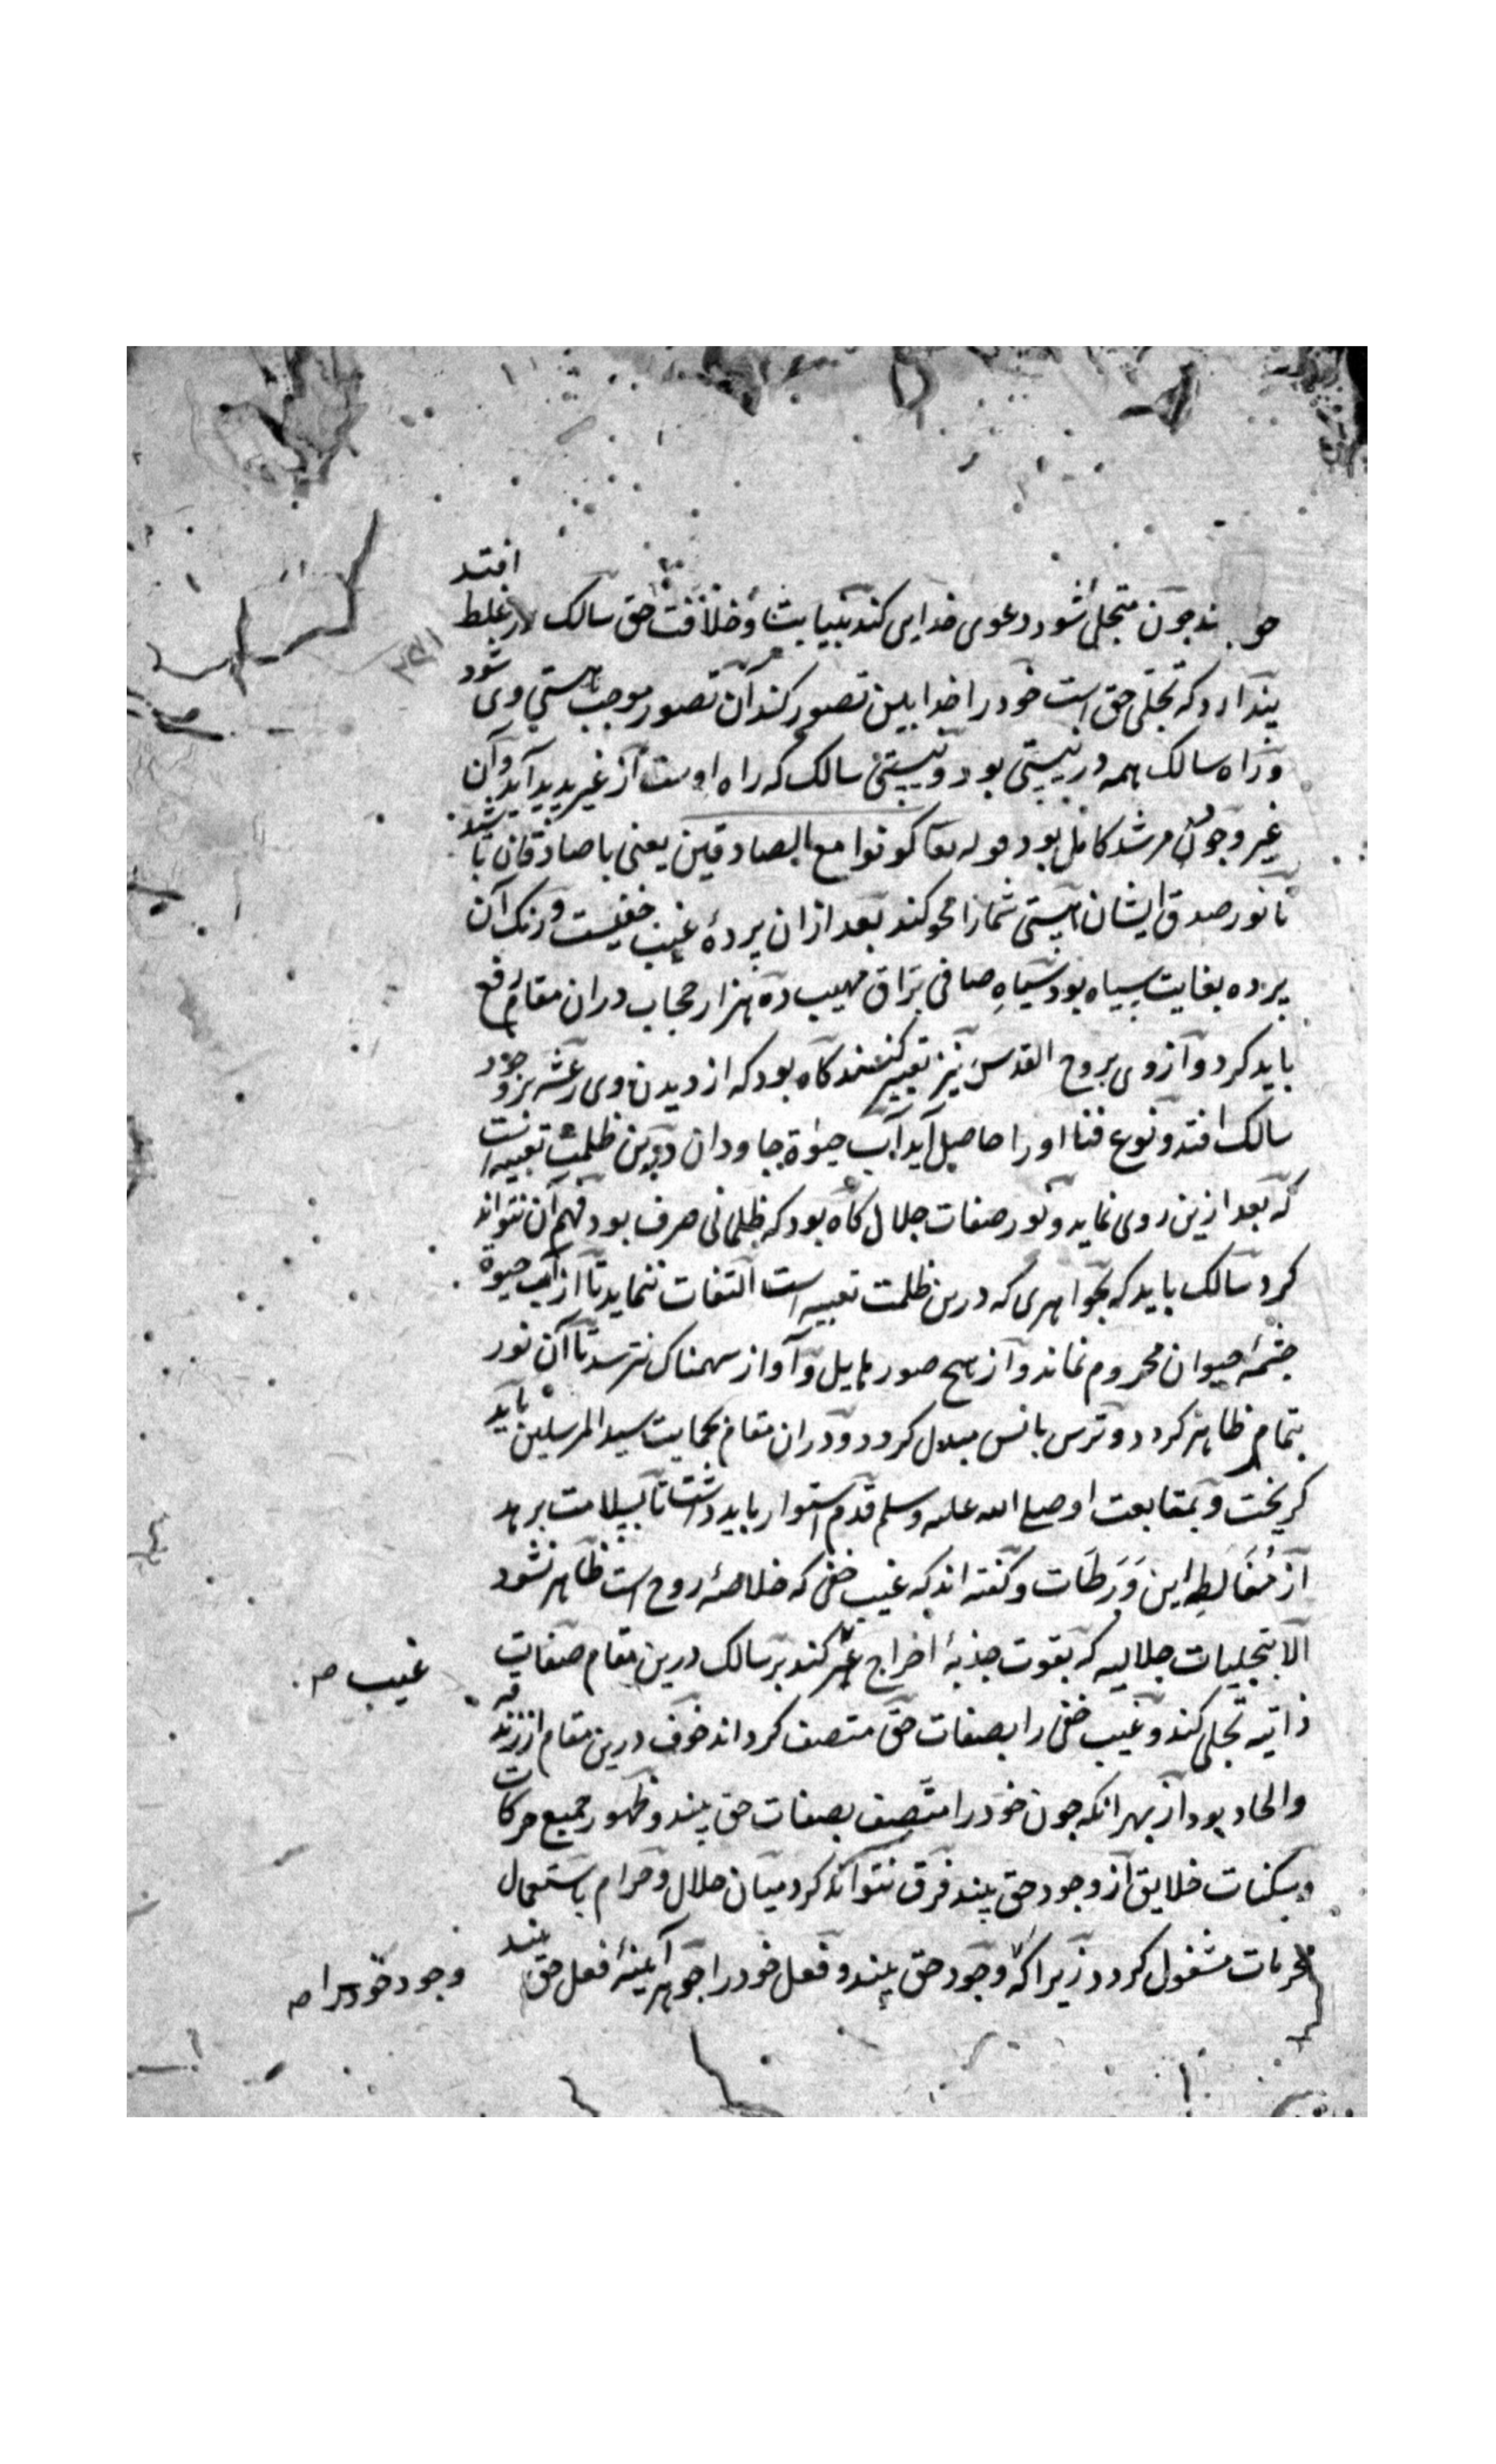 جون متجلی شود دعوی خدایی کند بنیابت و خلافت حق سالک در غلط افتد
پندارد که تجلی حق است خود را خدا بین تصور کند آن تصور موجب هستی وی شود
و راه سالک همه در نیستی بود و نیستی سالک که راه اوست از غیر پدید آید و آن
غیر وجود مرشد کامل بود قوله تعا کونوا مع الصادقین یعنی با صادقان باشید
تا نور صدق ایشان هستی شما را محو کند بعد از ان پردهٔ غیب خفیست و رنک آن
پرده بغایت سیاه بود سیاهِ صافی براق مهیب ده هزار حجاب دران مقام رفع
باید کرد و از وی بروح القدس نیز تعبیر کنند کاه بود که از دیدن وی رعشه بر وجود
سالک افتد و نوع فنا او را حاصل آید آب حیوة جاودان درین ظلمت تعبیه است
که بعد ازین روی نماید و نور صفات جلال کاه بود که ظلمانی صرف بود فهم آن نتواند
کرد سالک باید که بجواهری که درین ظلمت تعبیه است التفات ننماید تا از آب حیوة
چشمهٔ حیوان محروم نماند و از هیچ صور هایل و آواز سهمناک نترسد تا آن نور
بتمام ظاهر کردد و ترس بانس مبدل کردد و دران مقام بحمایت سید المرسلین باید
کریخت و بمتابعت او صلی الله علیه وسلم قدم استوار باید داشت تا بسلامت برهد
از مُغَالَطِهٔ این وَرَطَات و کفته اند که غیب خفی که خلاصهٔ روح است ظاهر نشود
الا بتجلیات جلالیه که بقوت جذبهٔ اخراج کند بر سالک درین مقام صفات
غیب صح
ذاتیه تجلی کند و غیب خفی را بصفات حق متصف کرداند خوف درین مقام از زندقه
والحاد بود از بهر انکه جون خود را متصف بصفات حق بیند و ظهور جمیع حرکات
و سکنات خلایق از وجود حق بیند فرق نتواند کرد میان حلال و حرام باستعمال
محرمات مشغول کردد زیرا که وجود حق بیند و فعل خود را جوهر آیینهٔ فعل حق بیند
وجود خود را صح